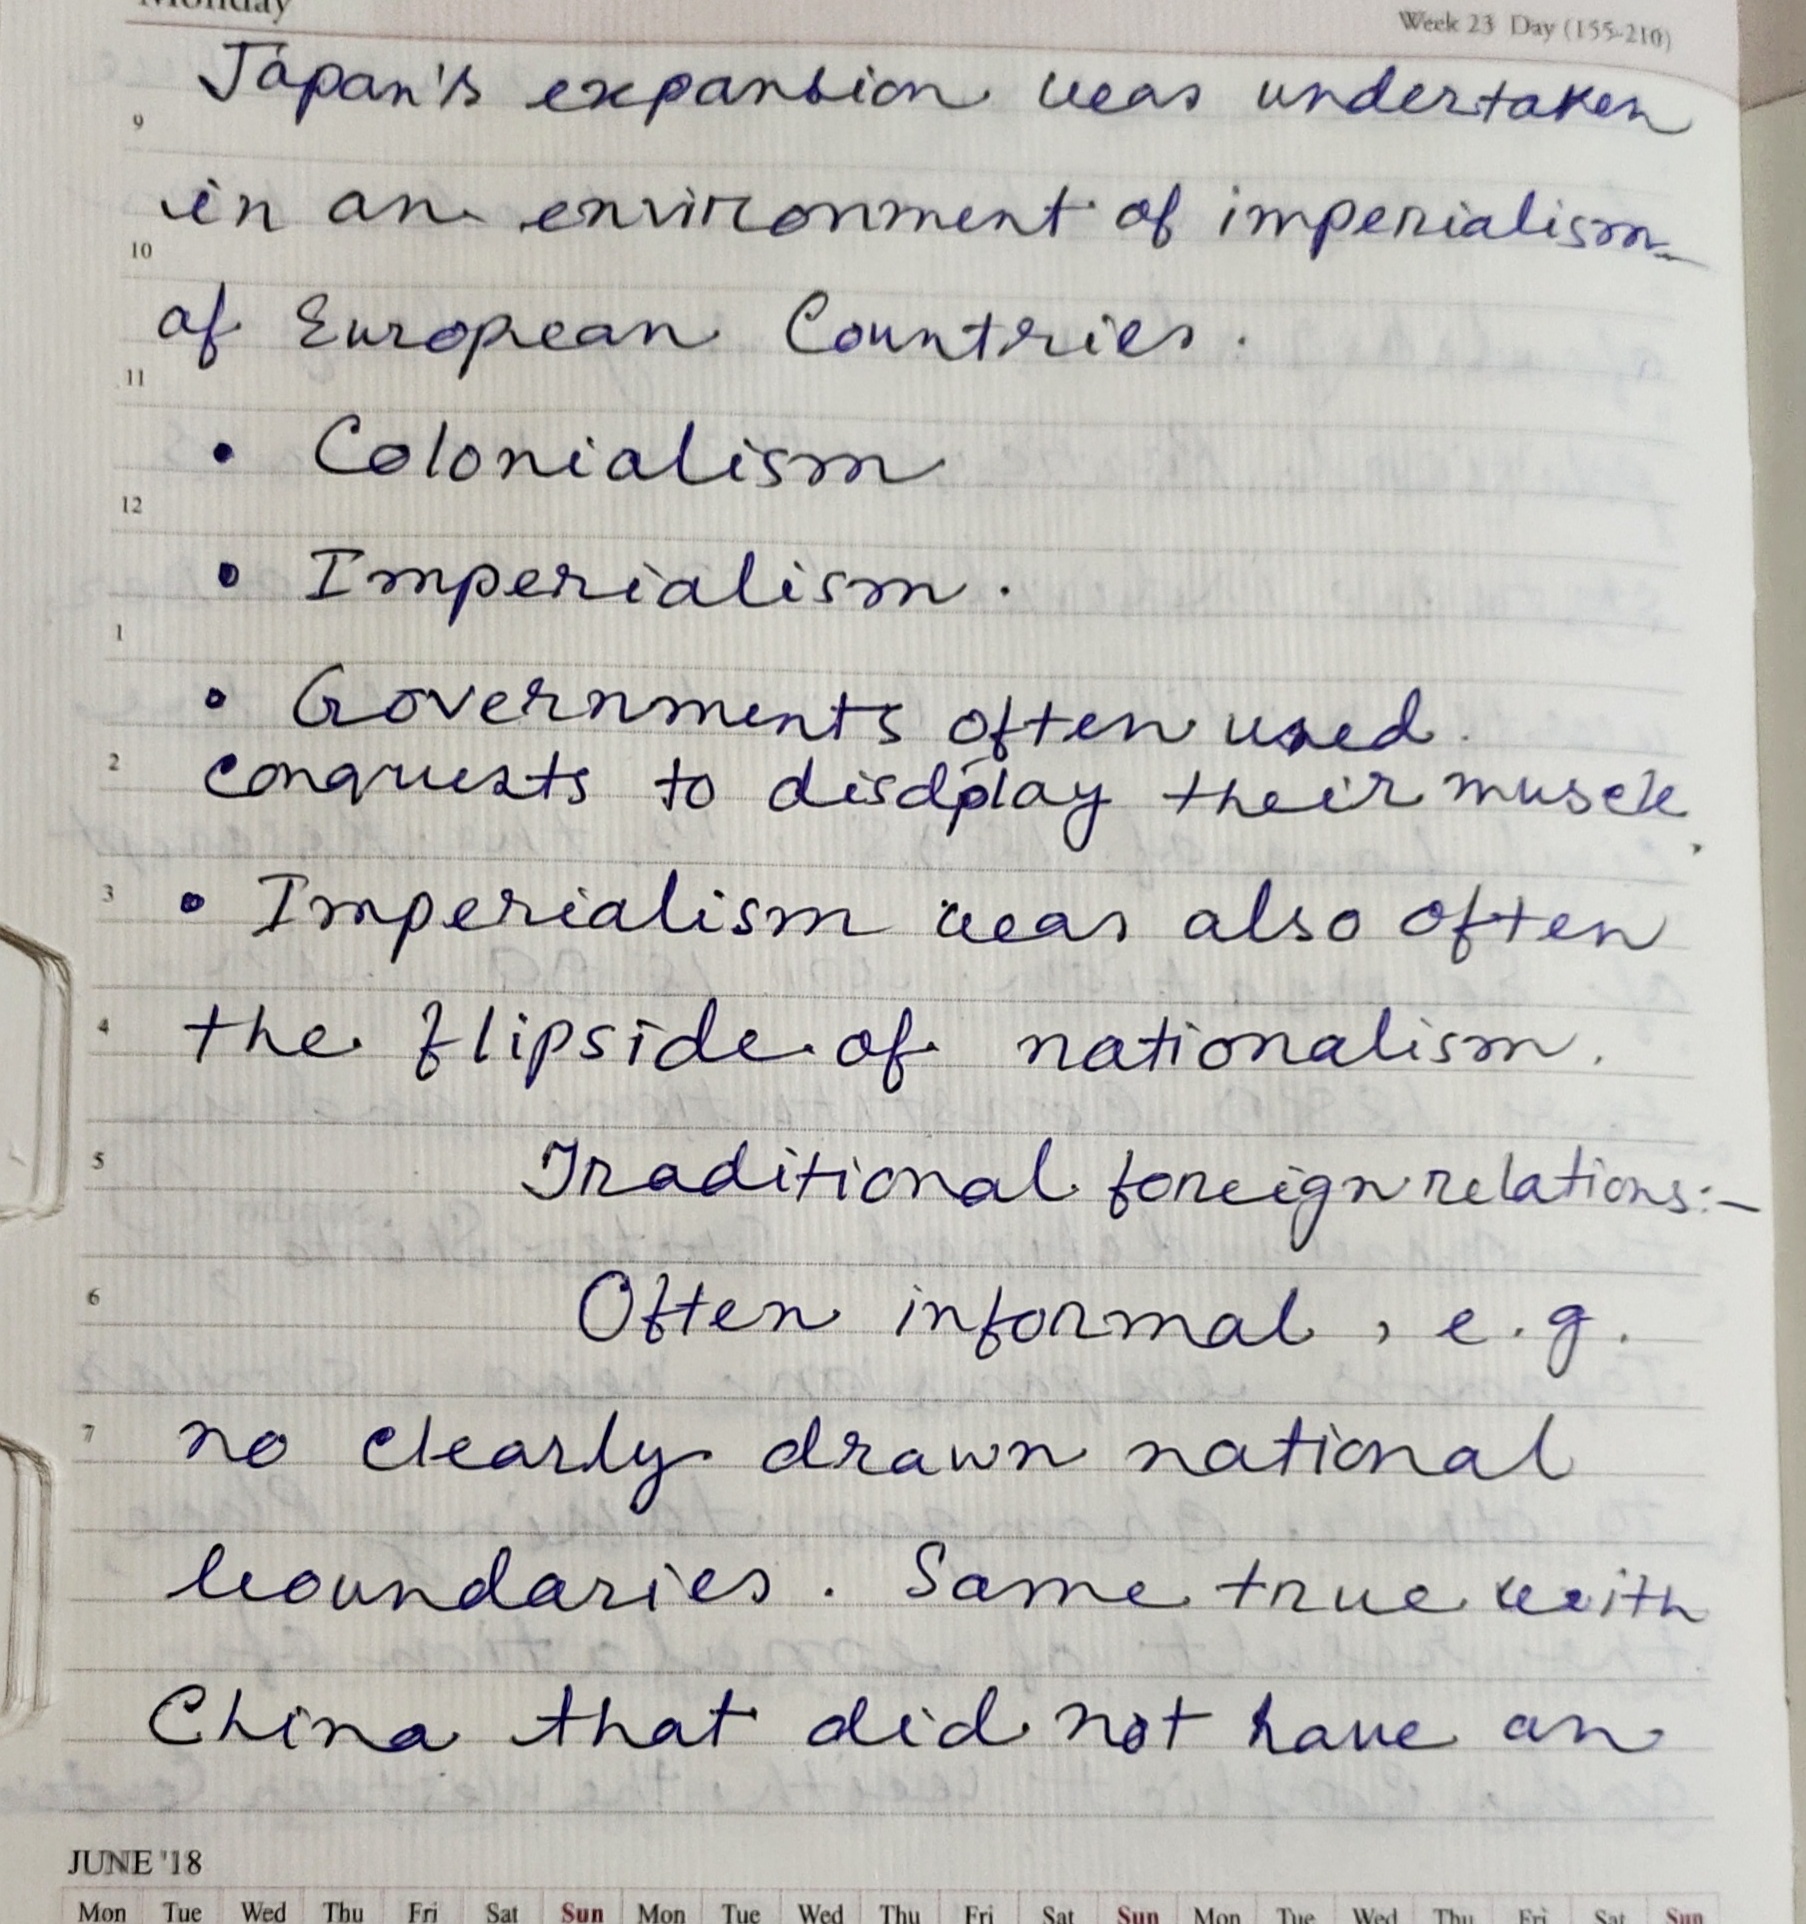 Monday
Week 23 Day (155-210)
Japan's expansion was undertaken
9
in an environment of imperialism
10
of European Countries.
11
• Colonialism
12
• Imperialism.
1
• Governments often used
2 conquests to disdplay their muscle,
3 • Imperialism was also often
4 the flipside of nationalism.
5 Traditional foreign relations:-
6 Often informal, e.g.
7 no clearly drawn national
boundaries. Same true with
China that did not have an
JUNE '18
Mon Tue Wed Thu Fri Sat Sun Mon Tue Wed Thu Fri Sat Sun Mon Tue Wed Thu Fri Sat Sun